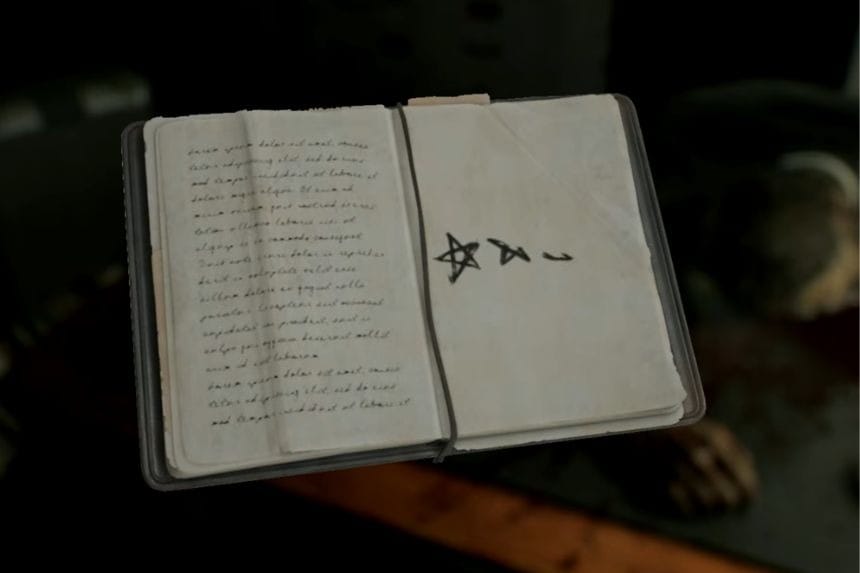 Lorem ipsum dolor sit amet, consec
tetur adipiscing elit, sed do eius
mod tempor incididunt ut labore et
dolore magna aliqua. Ut enim ad
minim veniam, quis nostrud exerci
tation ullamco laboris nisi ut
aliquip ex ea commodo consequat.
Duis aute irure dolor in reprehen
derit in voluptate velit esse
cillum dolore eu fugiat nulla
pariatur. Excepteur sint occaecat
cupidatat non proident, sunt in
culpa qui officia deserunt mollit
anim id est laborum
Lorem ipsum dolor sit amet, consec
tetur adipiscing elit, sed do eius
mod tempor incididunt ut labore et